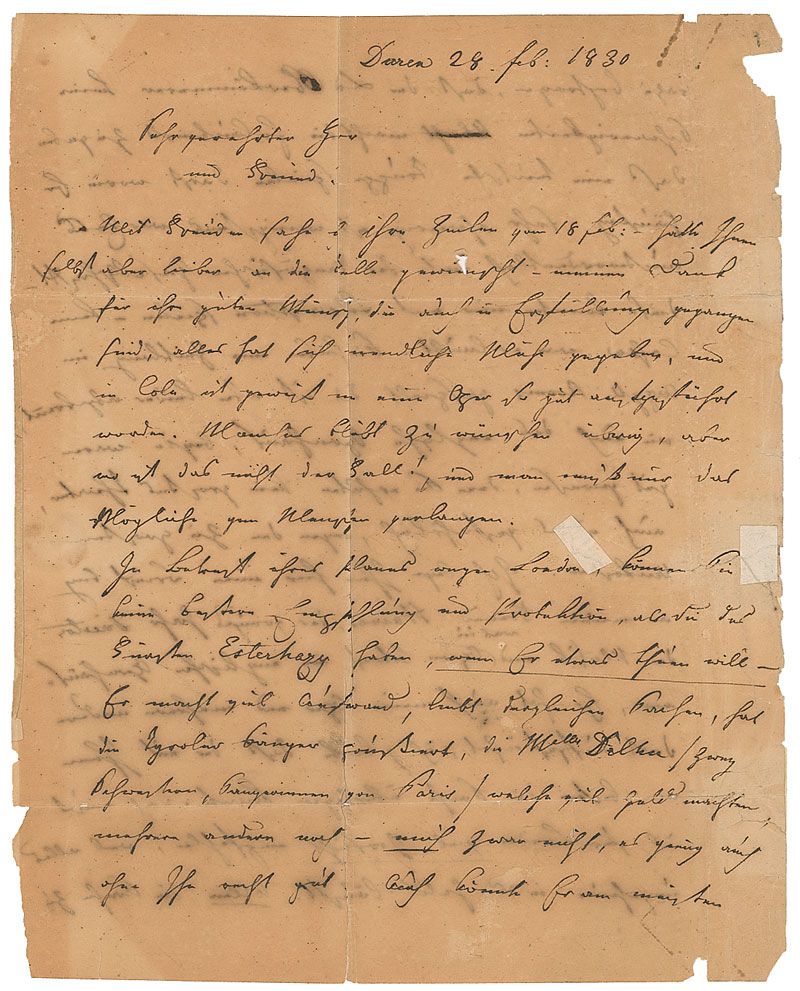 Düren 28 feb: 1830
Sehr geehrter Herr
und Freund.
Mit Freuden sahe i Ihre Zeilen vom 18 feb: – hätte Ihnen
selbst aber lieber an die Stelle gewünscht – meinen Dank
für ihre guten Wünsche, die auch in Erfüllung gegangen
sind, alles hat sich unendliche Mühe gegeben, und
in Cöln ist gewiß nie eine Oper so gut aufgeführt
worden. Manches bleibt zu wünschen übrig, aber
wo ist das nicht der Fall!, und man muß nur das
Mögliche von Menschen verlangen.
In Betreff ihres Planes wegen London, können Sie
keine bessere Empfehlung und Protektion, als die des
Fürsten Esterhazy haben, wenn Er etwas thun will –
Er macht viel Aufwand, liebt dergleichen Sachen, hat
die Tyroler Sänger poussiert, die Mlles Delhu / zwey
Schwestern, Sängerinnen von Paris / welche viel Geld machten,
mehrere andere noch – mich zwar nicht, es gieng auch
ohne Ihn recht gut. Auch könnte Er am meisten